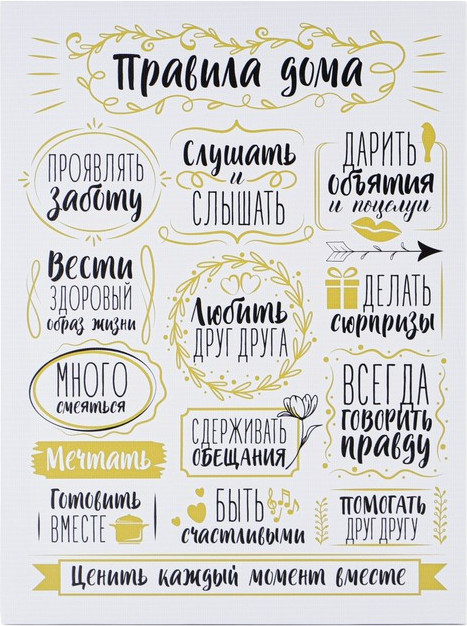 Правила дома
ПРОЯВЛЯТЬ
заботу
Слушать
и
СЛЫШАТЬ
ДАРИТЬ
объятия
и поцелуи
Вести
ЗДОРОВЫЙ
образ жизни
Любить
ДРУГ ДРУГА
ДЕЛАТЬ
сюрпризы
МНОГО
смеяться
Мечтать
СДЕРЖИВАТЬ
ОБЕЩАНИЯ
ВСЕГДА
говорить
правду
Готовить
ВМЕСТЕ
БЫТЬ
счастливыми
ПОМОГАТЬ
ДРУГ ДРУГУ
Ценить каждый момент вместе